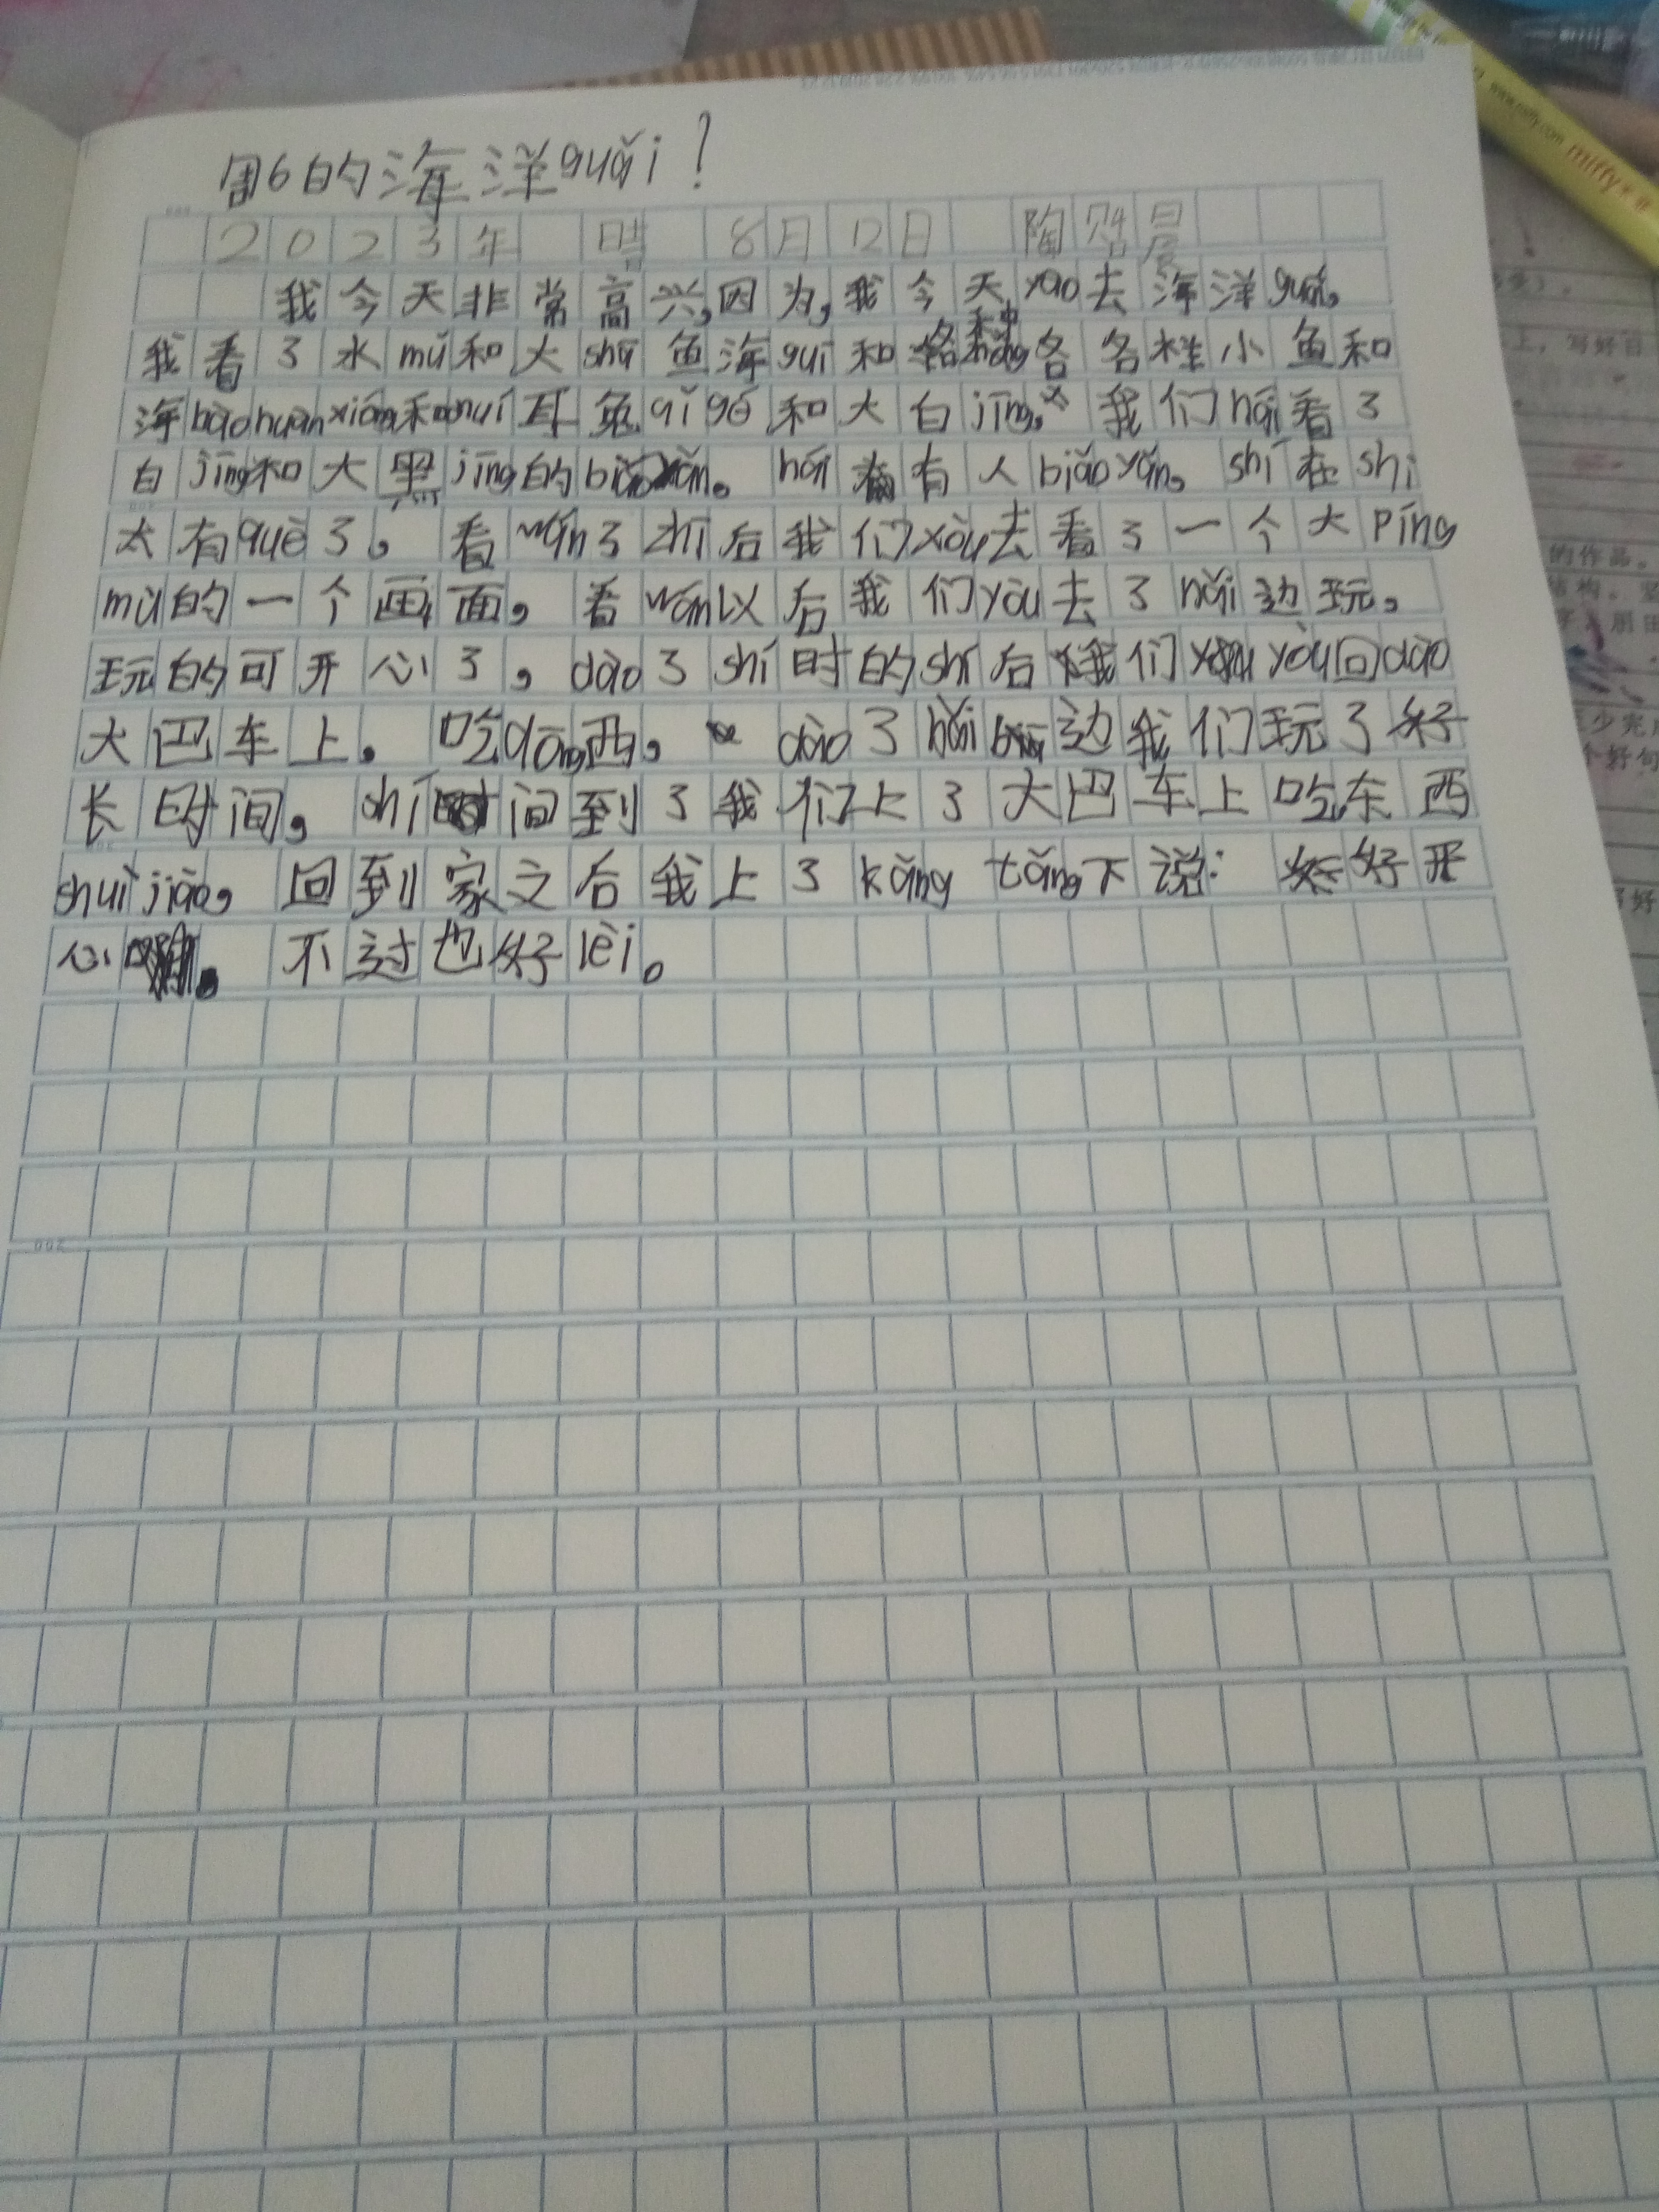 周6的海洋guǎi！
2023年 晴 8月12日 陶贻晨
我今天非常高兴,因为,我今天yào去海洋guǎi。
我看了水mǔ和大shā鱼海guī和各种各样小鱼和
海bàohuànxióng和chuí耳兔qǐgé和大白jīng。我们hái看了
白jīng和大黑jīng的biǎoyǎn。hái有人biǎoyǎn。shí在shì
太有què了。看wán了zhī后我们yòu去看了一个大píng
mù的一个画面。看wán以后我们yòu去了hǎi边玩。
玩的可开心了。dào了shí时的shí后我们yòu回dào
大巴车上。吃dōng西。dào了hǎi边我们玩了好
长时间。shí间到了我们上了大巴车上吃东西
shuì jiào。回到家之后我上了kàng tǎng下说：好开
心。不过也好lèi。
miffy
www.miffy.com
的作品。